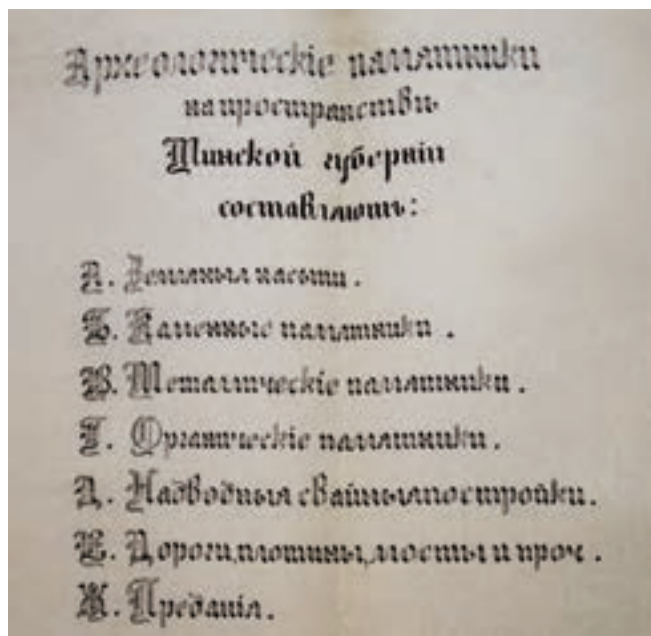 Археологическіе памятники
на пространствѣ
Минской губерніи
составляютъ:
А. Земляныя насыпи.
Б. Каменные памятники.
В. Металлическіе памятники.
Г. Органическіе памятники.
Д. Надводныя свайныя постройки.
Е. Дороги, плотины, мосты и проч.
Ж. Преданія.